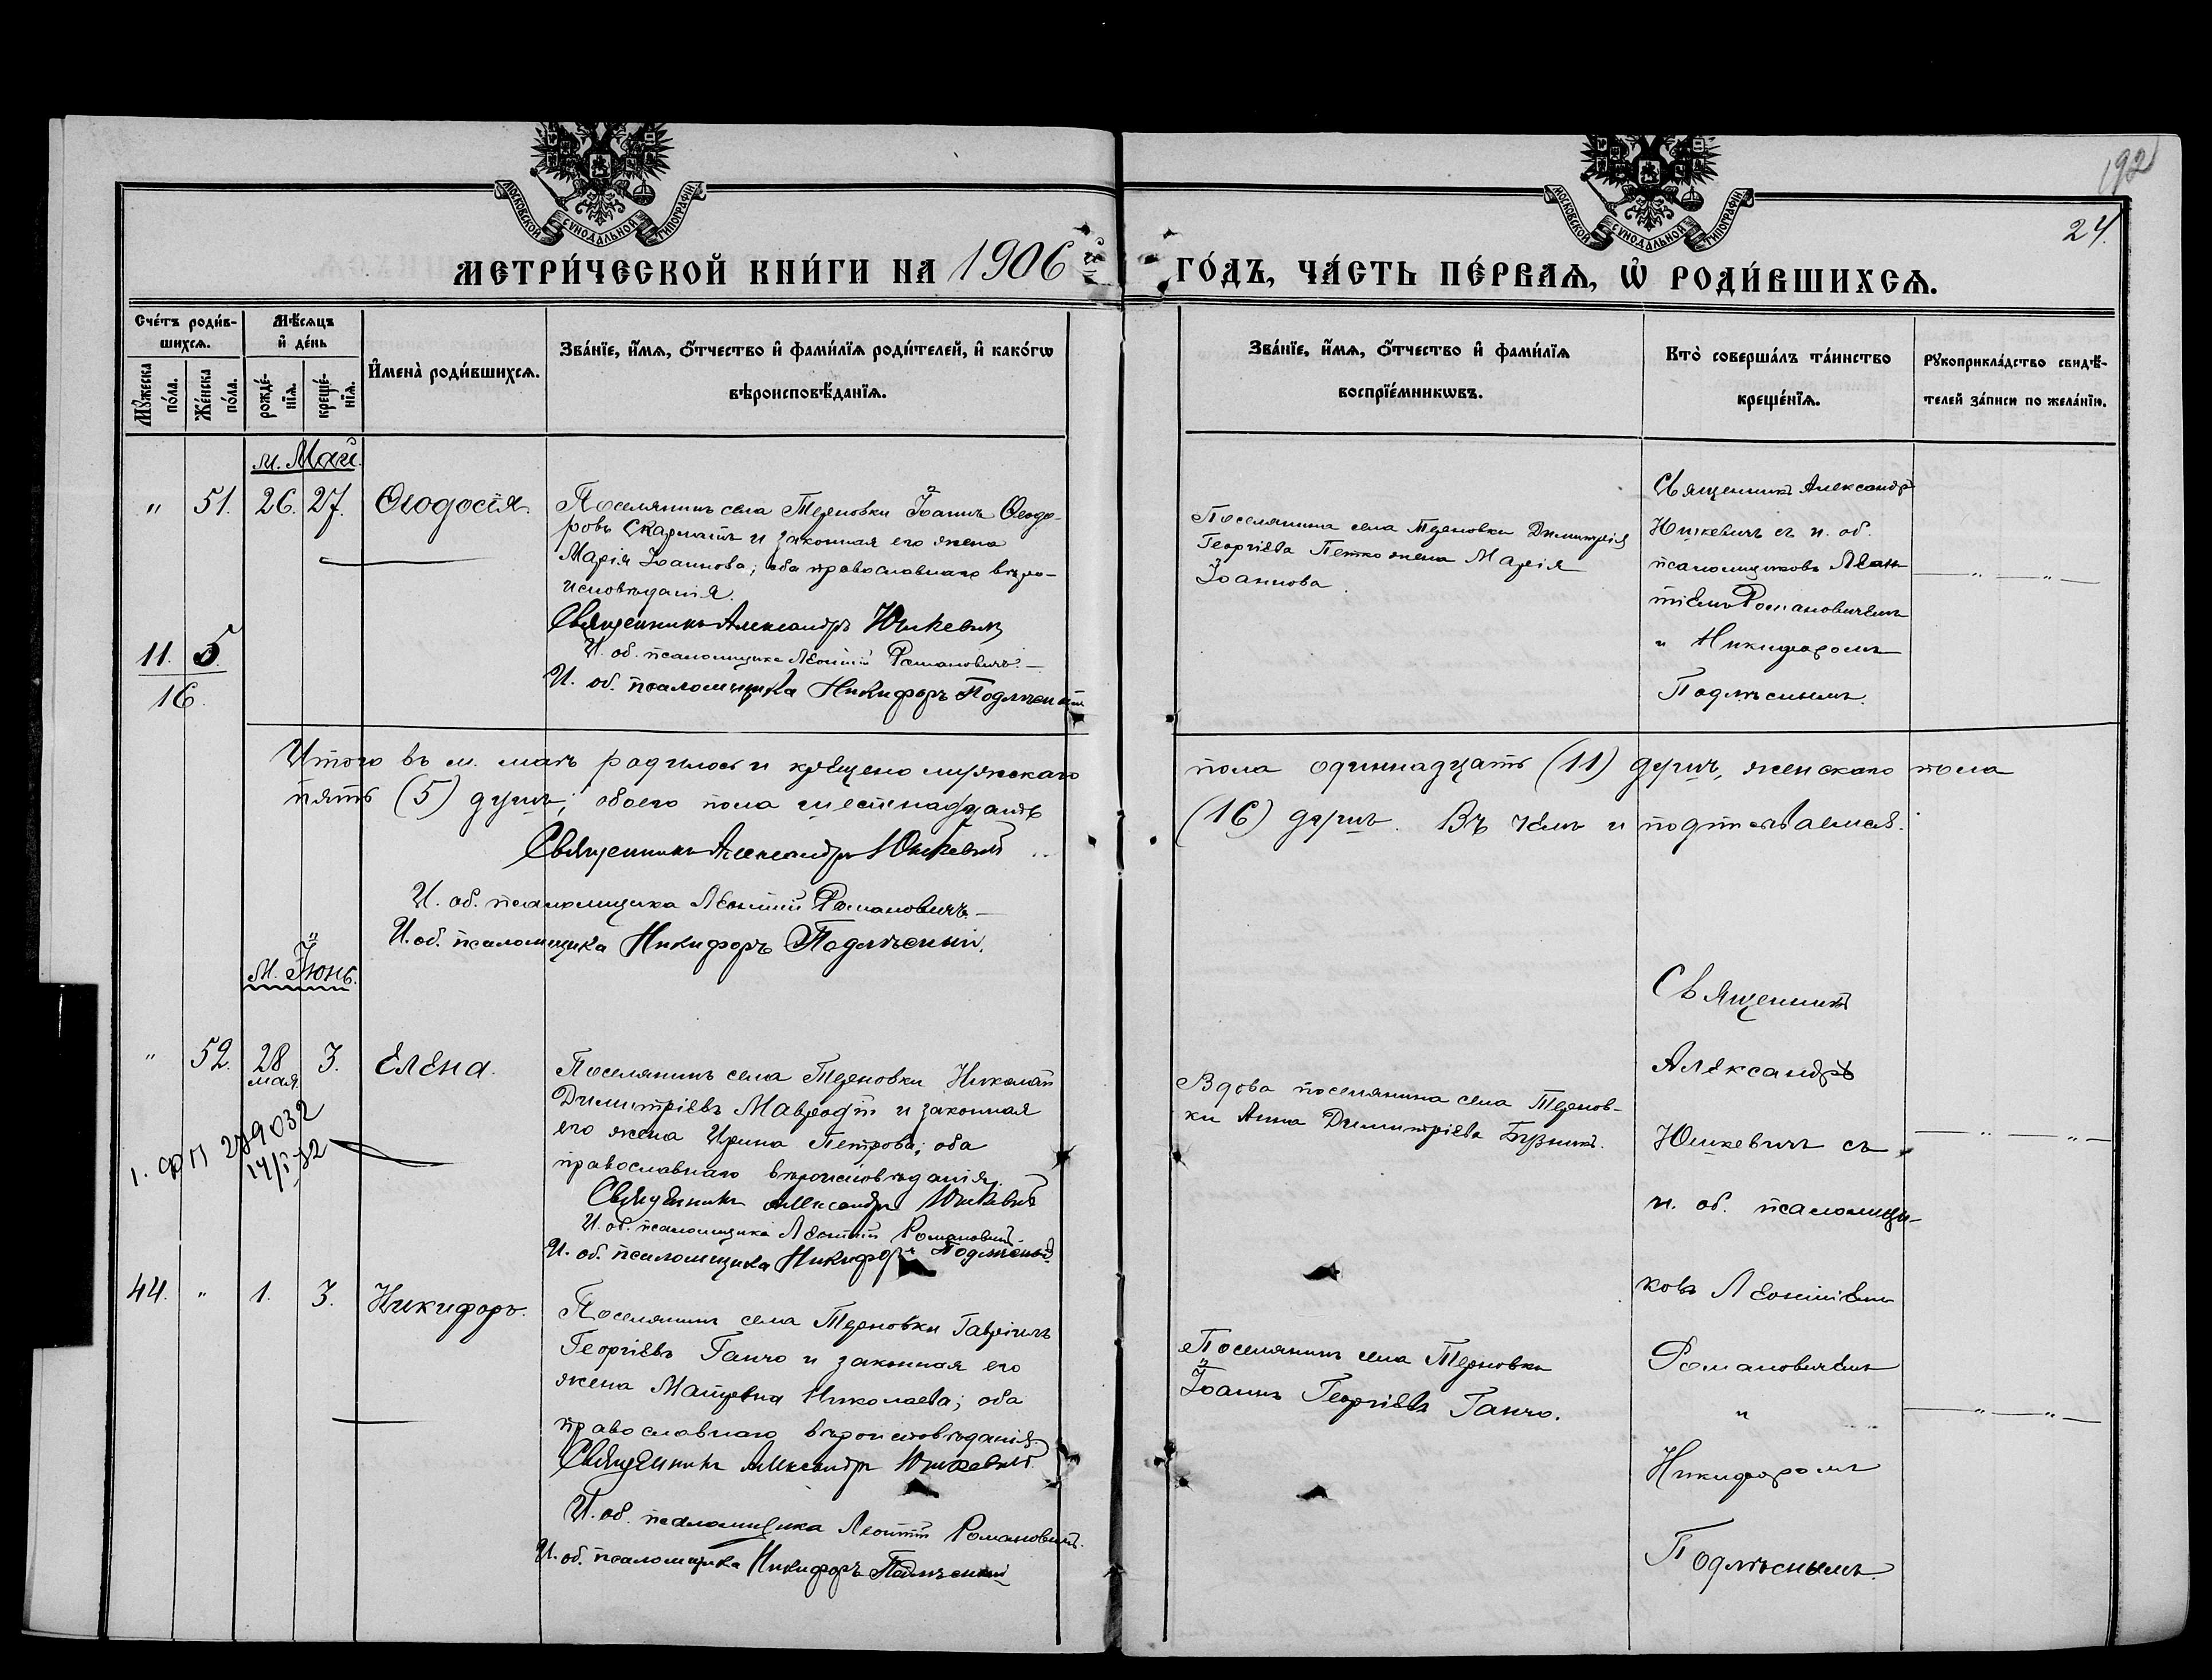 192
24.
МОСКОВСКОЙ СѴНОДАЛЬНОЙ ТИПОГРАФІИ
МОСКОВСКОЙ СѴНОДАЛЬНОЙ ТИПОГРАФІИ
МЕТРИ́ЧЕСКОЙ КНИ́ГИ НА 1906 й ГО́ДЪ, ЧА́СТЬ ПЕ́РВАѦ, Ѽ РОДИ́ВШИХСѦ.
Сче́тъ роди́в-
шихсѧ.
Мꙋ́жеска по́ла.
Же́нска по́ла.
Мѣ́сѧцъ
и҆ де́нь
рожде́-
нїѧ.
креще́-
нїѧ.
И҆мена̀ роди́вшихсѧ.
Зва́нїе, и҆́мѧ, ѻ҆́тчество и҆ фами́лїѧ роди́телей, и҆ како́гѡ
вѣроисповѣ́данїѧ.
Зва́нїе, и҆́мѧ, ѻ҆́тчество и҆ фами́лїѧ
воспрїе́мникѡвъ.
Кто̀ соверша́лъ та́инство
креще́нїѧ.
Рꙋкоприкла́дство свидѣ́-
телей за́писи по жела́нїю.
м. Май.
" 51. 26. 27. Ѳеодосія.
Поселянинъ села Терновки Іоаннъ Ѳеодо-
ровъ Скарлатъ и законная его жена
Марія Іоаннова; оба православнаго вѣро-
исповѣданія.
Священникъ Александръ Юшкевичъ
И. об. псаломщика Леонтій Романовичъ.
И. об. псаломщика Никифоръ Подлѣсный
Поселянина села Терновки Димитрія
Георгіева Петко жена Марія
Іоаннова.
Священникъ Александръ
Юшкевичъ съ и. об.
псаломщиковъ Леон-
тіемъ Романовичемъ
и Никифоромъ
Подлѣснымъ.
11. 5.
16.
Итого въ м. маѣ родилось и крещено мужскаго пола одиннадцать (11) душъ, женскаго пола
пять (5) душъ; обоего пола шестнадцать (16) душъ. Въ чемъ и подписываемся.
Священникъ Александръ Юшкевичъ
И. об. псаломщика Леонтій Романовичъ
И. об. псаломщика Никифоръ Подлѣсный.
М. Іюнь.
" 52. 28 мая. 3. Елена.
Поселянинъ села Терновки Николай
Димитріевъ Мавродій и законная
его жена Ирина Петрова; оба
православнаго вѣроисповѣданія.
Священникъ Александръ Юшкевичъ
И. об. псаломщика Леонтій Романовичъ.
И. об. псаломщика Никифоръ Подлѣсный
Вдова поселянина села Тернов-
ки Анна Димитріева Бузникъ.
Священникъ
Александръ
Юшкевичъ съ
и. об. псаломщи-
ковъ Леонтіемъ
Романовичемъ
и
Никифоромъ
Подлѣснымъ.
44. " 1. 3. Никифоръ.
Поселянинъ села Терновки Гавріилъ
Георгіевъ Ганчо и законная его
жена Матрона Николаева; оба
православнаго вѣроисповѣданія.
Священникъ Александръ Юшкевичъ.
И. об. псаломщика Леонтій Романовичъ.
И. об. псаломщика Никифоръ Подлѣсный
Поселянинъ села Терновки
Іоаннъ Георгіевъ Ганчо.